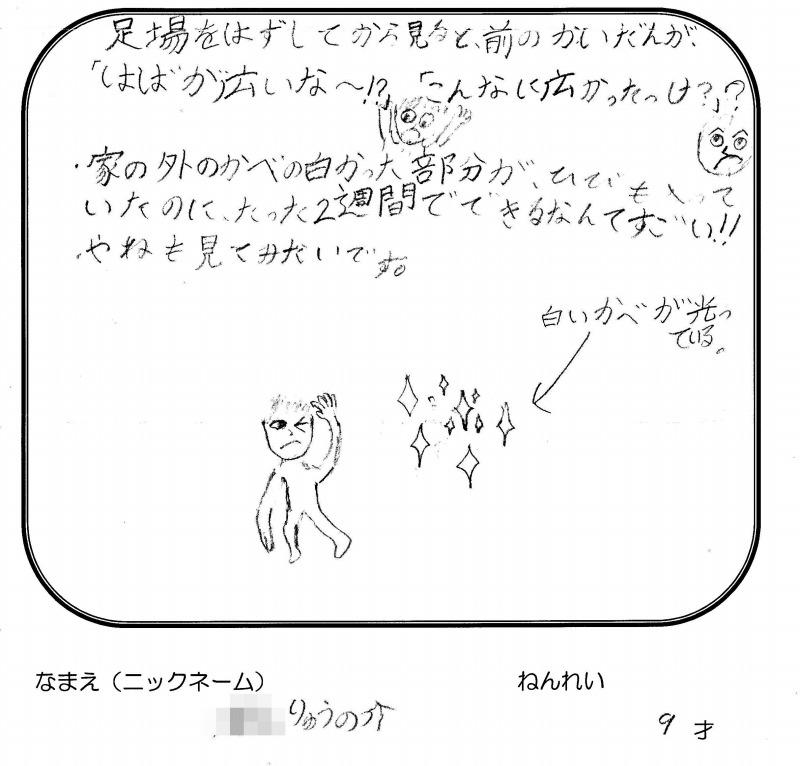 足場をはずしてから見ると、前のかいだんが、
「はばが広いな～!?」「こんなに広かったっけ?」?
・家の外のかべの白かった部分が、ひびもって
いたのに、たった2週間でできるなんてすごい!!
・やねも見てみたいです。
白いかべが光っ
ている。
なまえ（ニックネーム） ねんれい
りゅうの介 9才